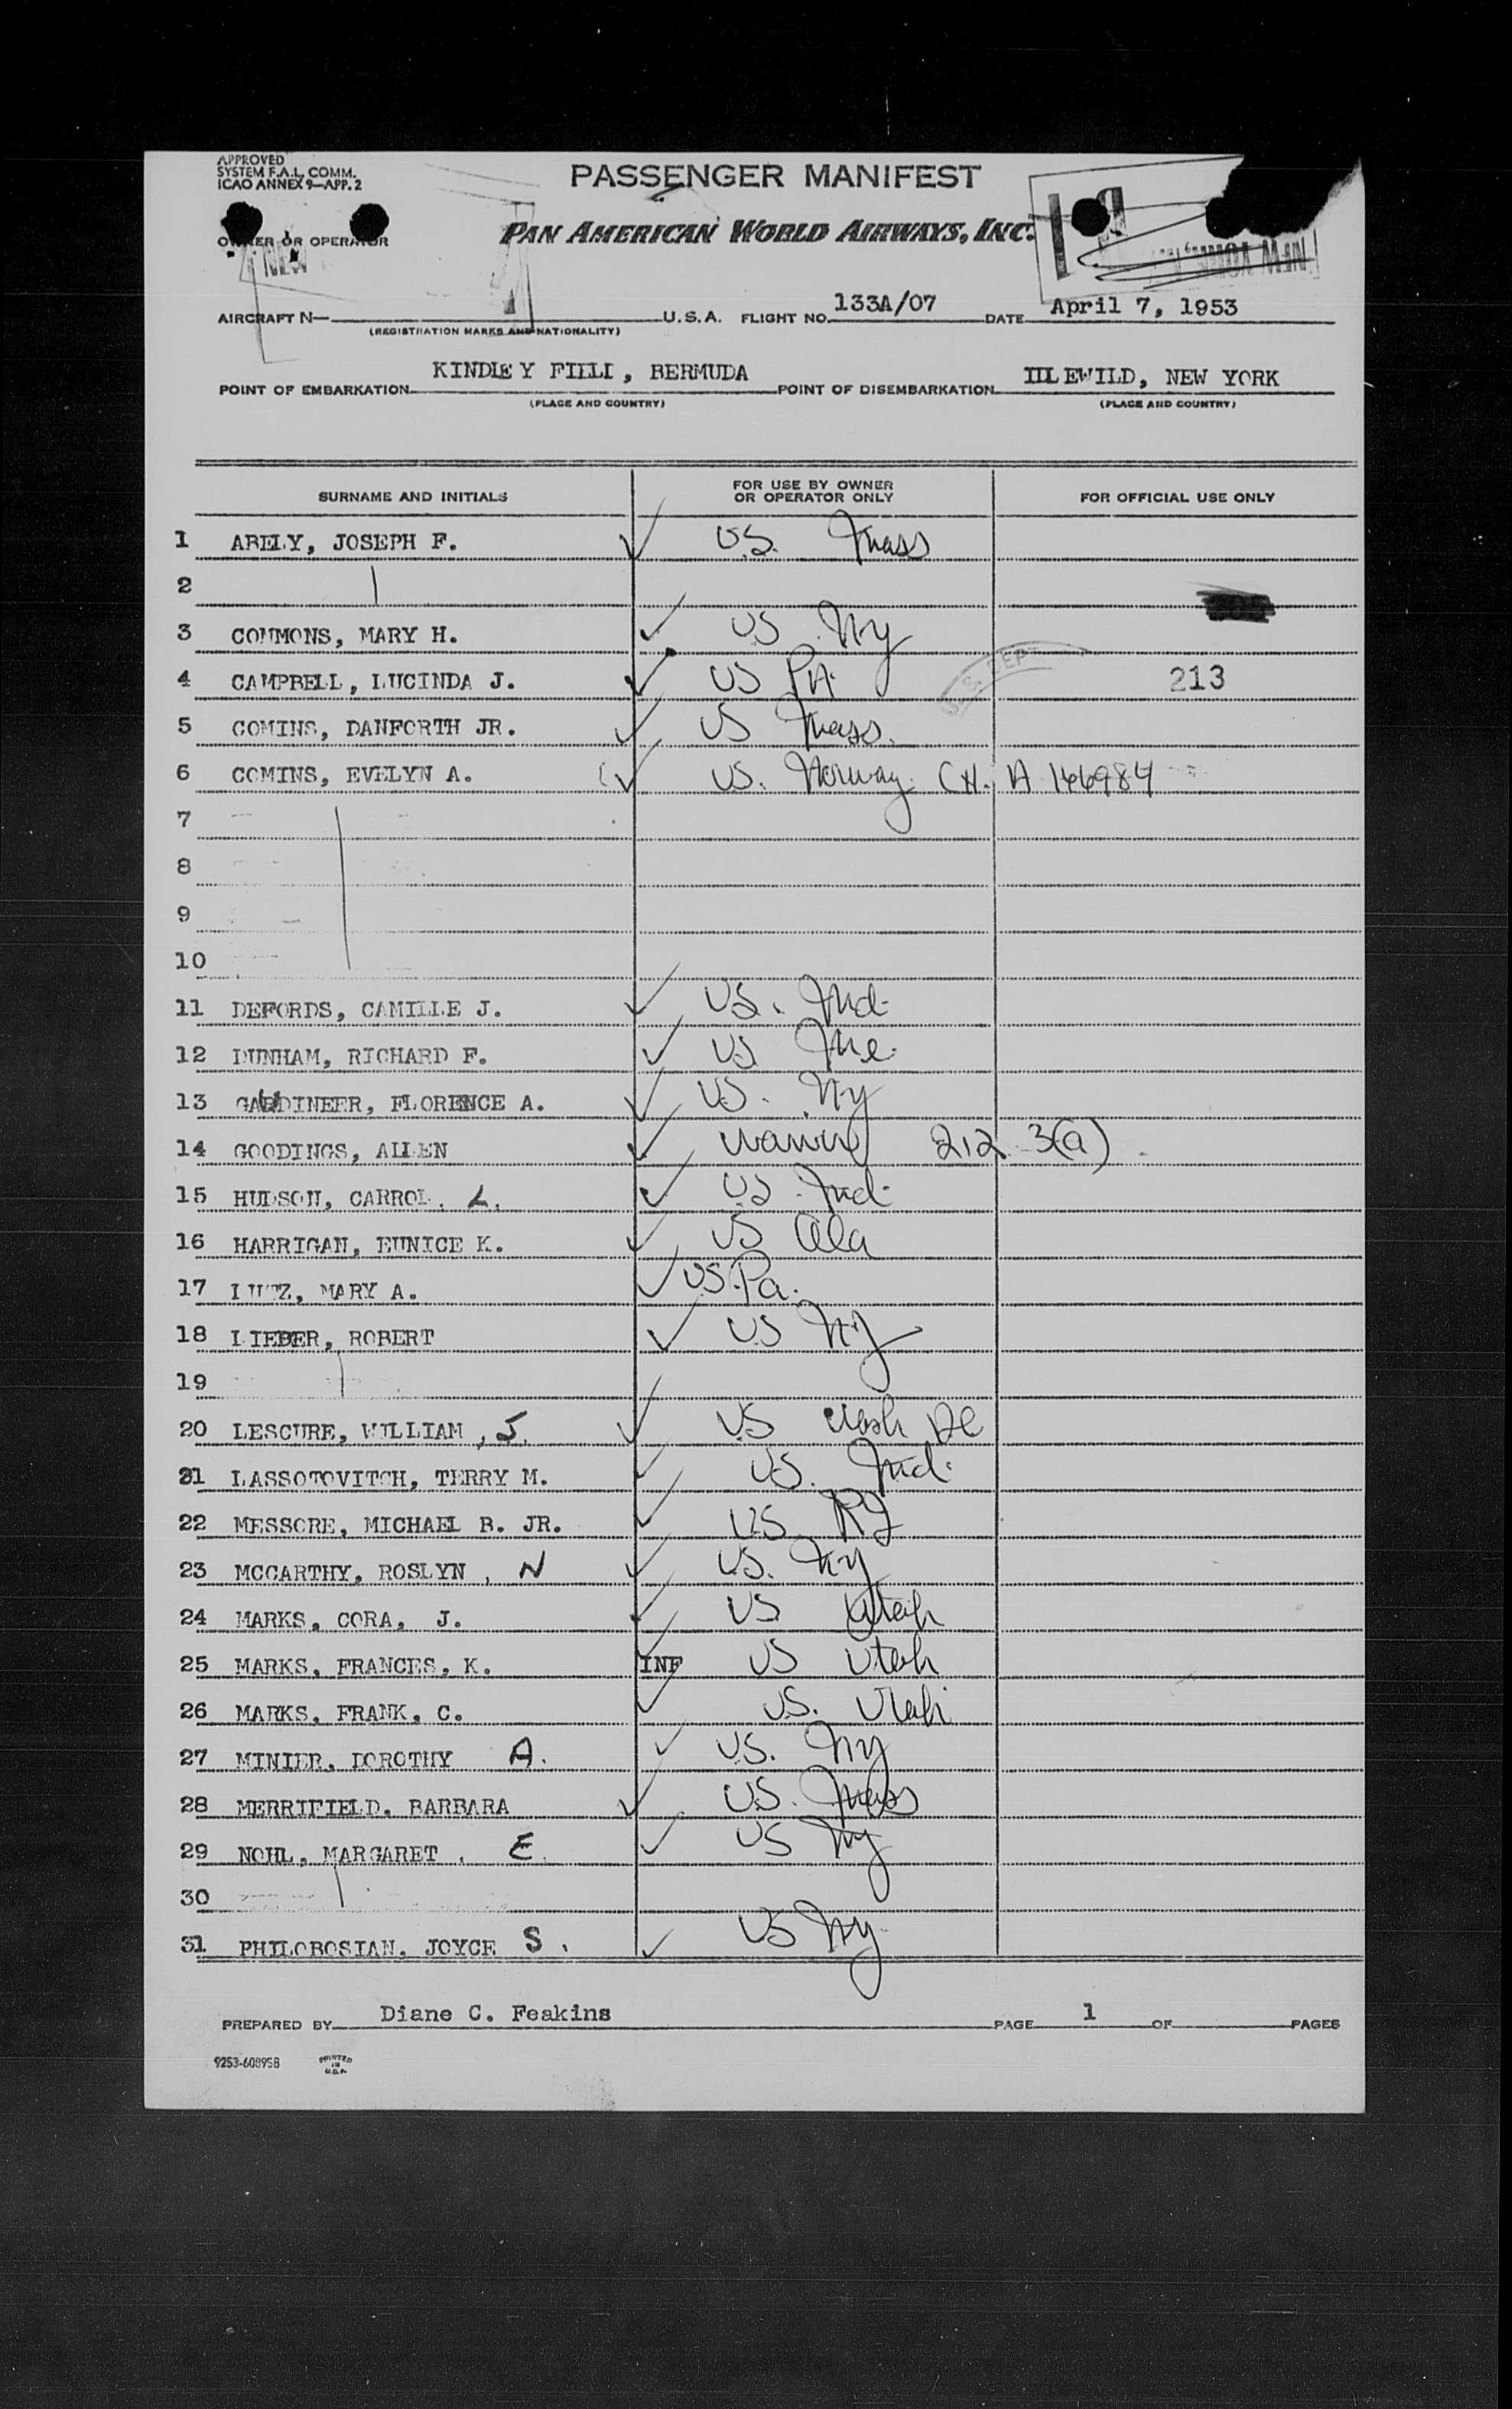 APPROVED
SYSTEM F.A.L. COMM.
ICAO ANNEX 9—APP. 2
PASSENGER MANIFEST
OWNER OR OPERATOR
PAN AMERICAN WORLD AIRWAYS, INC.
NEW
NEW YORK
AIRCRAFT N— U.S.A. FLIGHT NO. 133A/07 DATE April 7, 1953
(REGISTRATION MARKS AND NATIONALITY)
POINT OF EMBARKATION KINDLEY FIELD, BERMUDA POINT OF DISEMBARKATION IDLEWILD, NEW YORK
(PLACE AND COUNTRY) (PLACE AND COUNTRY)
SURNAME AND INITIALS FOR USE BY OWNER OR OPERATOR ONLY FOR OFFICIAL USE ONLY
1 ABELY, JOSEPH F. ✓ U.S. Mass
2
3 COMMONS, MARY H. ✓ US Ny
4 CAMPBELL, LUCINDA J. ✓ US PA. U.S. DEPT 213
5 COMINS, DANFORTH JR. ✓ US Mass.
6 COMINS, EVELYN A. ✓ US. Norway A 146984
7
8
9
10
11 DEFORDS, CAMILLE J. ✓ US. Md.
12 DUNHAM, RICHARD F. ✓ US Me.
13 GARDINEER, FLORENCE A. ✓ US. Ny
14 GOODINGS, ALLEN ✓ 212 3(a)
15 HUDSON, CARROL. L. ✓ US. Md.
16 HARRIGAN, EUNICE K. ✓ US Ala
17 LUTZ, MARY A. ✓ US. Pa.
18 LIEBER, ROBERT ✓ US NJ
19
20 LESCURE, WILLIAM, J. ✓ US Wash DC
21 LASSOTOVITCH, TERRY M. ✓ US. Md.
22 MESSORE, MICHAEL B. JR. ✓ US RI
23 MCCARTHY, ROSLYN, N ✓ US. Ny
24 MARKS, CORA, J. ✓ US Utah
25 MARKS, FRANCES, K. INF US Utah
26 MARKS, FRANK, C. ✓ US. Utah
27 MINIER, DOROTHY A. ✓ US. Ny
28 MERRIFIELD, BARBARA ✓ US. Mass
29 NOHL, MARGARET . E. ✓ US Ny
30
31 PHILOBOSIAN, JOYCE S. ✓ US Ny
PREPARED BY Diane C. Feakins PAGE 1 OF PAGES
9253-60895B PRINTED IN U.S.A.